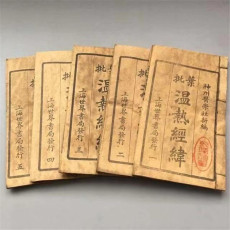 神州醫學社新編
葉批
溫熱經緯
上海世界書局發行 一
批
上海世界書局發行 二
批
溫熱經
上海世界書局發行 三
批
上海世界書局發行 四
批
上海世界書局發行 五